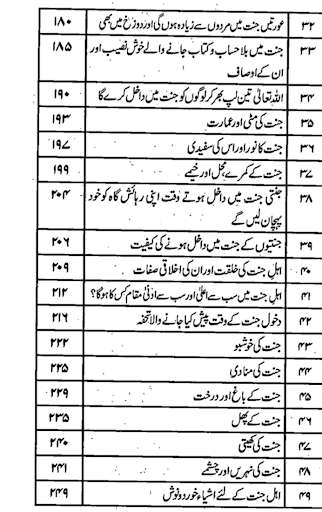 ۳۲ عورتیں جنت میں مردوں سے زیادہ ہوں گی اور دوزخ میں بھی ۱۸۰
۳۳ جنت میں بلا حساب و کتاب جانے والے خوش نصیب اور ۱۸۵
ان کے اوصاف
۳۴ اللہ تعالیٰ تین لپ بھر کر لوگوں کو جنت میں داخل کرے گا ۱۹۰
۳۵ جنت کی مٹی اور عمارت ۱۹۳
۳۶ جنت کا نور اور اس کی سفیدی ۱۹۷
۳۷ جنت کے کمرے، محل اور خیمے ۱۹۹
۳۸ جنتی جنت میں داخل ہوتے وقت اپنی رہائش گاہ کو خود ۲۰۴
پہچان لیں گے
۳۹ جنتیوں کے جنت میں داخل ہونے کی کیفیت ۲۰۶
۴۰ اہل جنت کی خلقت اور ان کی اخلاقی صفات ۲۰۹
۴۱ اہل جنت میں سب سے اعلیٰ اور سب سے ادنیٰ مقام کس کا ہو گا؟ ۲۱۲
۴۲ دخول جنت کے وقت پیش کیا جانے والا تحفہ ۲۱۶
۴۳ جنت کی خوشبو ۲۲۲
۴۴ جنت کی منادی ۲۲۵
۴۵ جنت کے باغ اور درخت ۲۲۹
۴۶ جنت کے پھل ۲۳۵
۴۷ جنت کی کھیتی ۲۴۰
۴۸ جنت کی نہریں اور چشمے ۲۴۱
۴۹ اہل جنت کے لئے اشیاء خورد و نوش ۲۴۹